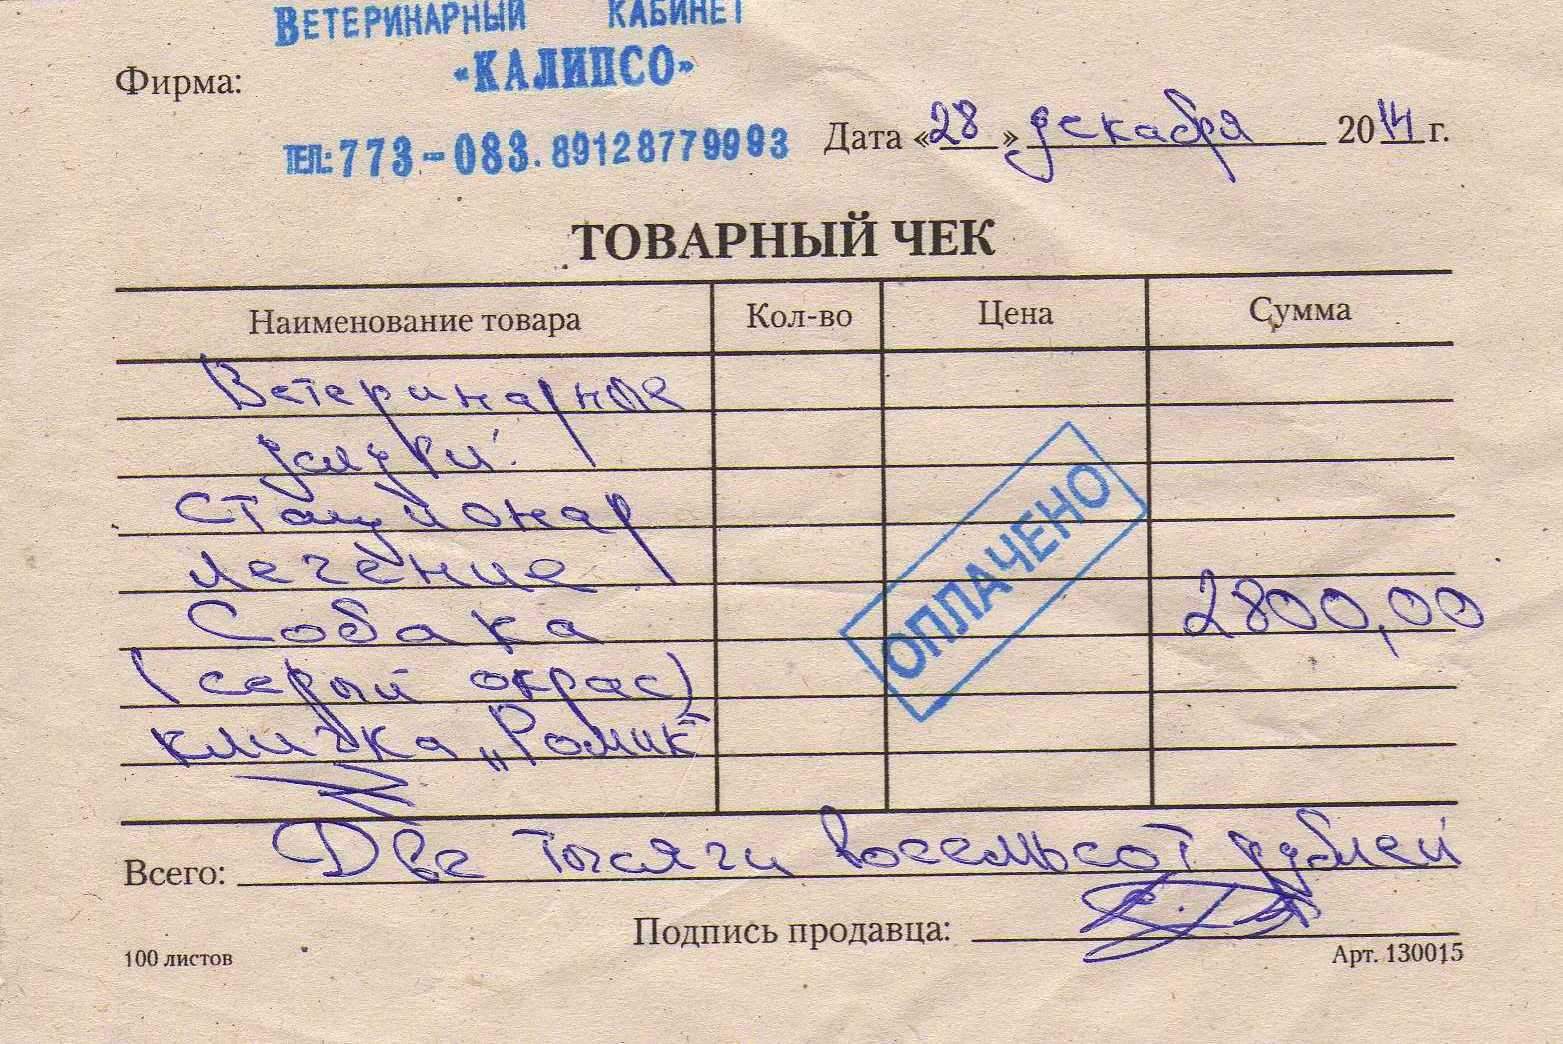 ВЕТЕРИНАРНЫЙ КАБИНЕТ
«КАЛИПСО»
Фирма:
ТЕЛ.: 773-083. 89128779993
Дата «28» декабря 2014 г.
ТОВАРНЫЙ ЧЕК
Наименование товара Кол-во Цена Сумма
Ветеринарные
услуги:
стационар
лечение
Собака 2800,00
(серый окрас)
кличка „Ромик"
ОПЛАЧЕНО
Всего: Две тысячи восемьсот рублей
Подпись продавца:
100 листов Арт. 130015